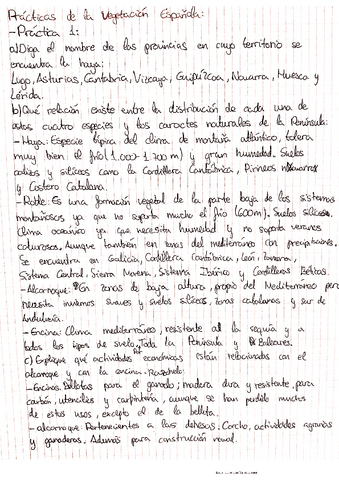 Prácticas de la Vegetación Española:
- Práctica 1:
a) Diga el nombre de las provincias en cuyo territorio se
encuentra la haya:
Lugo, Asturias, Cantabria, Vizcaya, Guipúzcoa, Navarra, Huesca y
Lérida.
b) Qué relación existe entre la distribución de cada una de
estas cuatro especies y los caractes naturales de la Península:
- Haya: Especie típica del clima de montaña atlántico, tolera
muy bien el frío (1.000-1.700 m) y gran humedad. Suelos
calizos y silíceos como la Cordillera Cantábrica, Pirineos Navarros
y Costero Catalana.
- Roble: Es una formación vegetal de la parte baja de los sistemas
montañosos ya que no soporta mucho el frío (600m). Suelos silíceos.
Clima oceánico ya que necesita humedad y no soporta veranos
calurosos. Aunque también en zonas del mediterráneo con precipitaciones.
Se encuentra en Galicia, Cordillera Cantábrica, León, Zamora,
Sistema Central, Sierra Morena, Sistema Ibérico y Cordilleras Béticas.
- Alcornoque: En zonas de baja altura, propio del Mediterráneo pero
necesita inviernos suaves y suelos silíceos, zonas catalanas y sur de
Andalucía.
- Encina: Clima mediterráneo, resistente al la sequía y a
todos los tipos de suelo. Toda la Península y Baleares.
c) Explique qué actividades económicas están relacionadas con el
alcornoque y con la encina. Razónelo:
- Encina: Bellotas para el ganado; madera dura y resistente, para
carbón, utensilios y carpintería, aunque se han perdido muchos
de estos usos, excepto el de la bellota.
- alcornoque: Pertenecientes a las dehesas. Corcho, actividades agrarias
y ganaderas. Además para construcción naval.